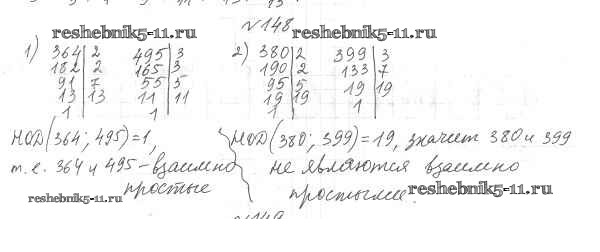 №148
reshebnik5-11.ru
reshebnik5-11.ru
1) 364 | 2    495 | 3
182 | 2    165 | 3
91 | 7    55 | 5
13 | 13    11 | 11
1    1
2) 380 | 2    399 | 3
190 | 2    133 | 7
95 | 5    19 | 19
19 | 19    1
1
НОД(364; 495)=1,
т.е. 364 и 495 – взаимно
простые
НОД(380; 399)=19, значит 380 и 399
не являются взаимно
простыми.
reshebnik5-11.ru
reshebnik5-11.ru
№149